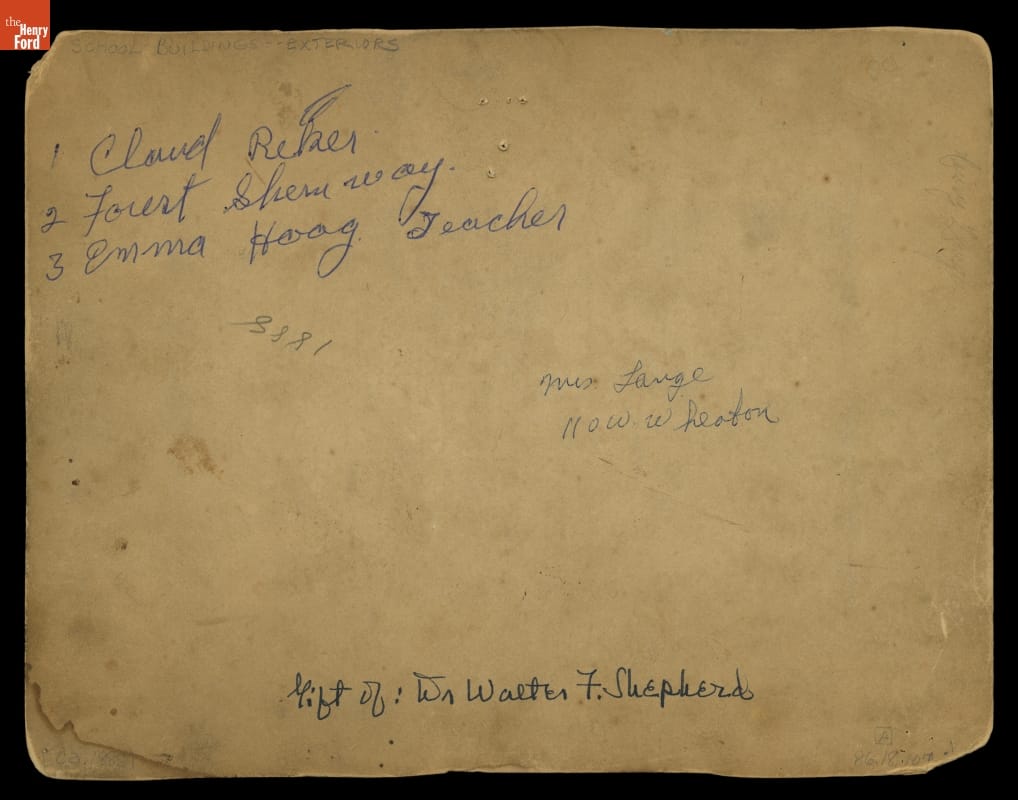 the
Henry
Ford
SCHOOL BUILDINGS--EXTERIORS
1 Claud Reker
2 Forest Shemway.
3 Emma Hoag. Teacher
Mrs. Lange
110 W. Wheaton
Gift of: Dr Walter F. Shepherd
A